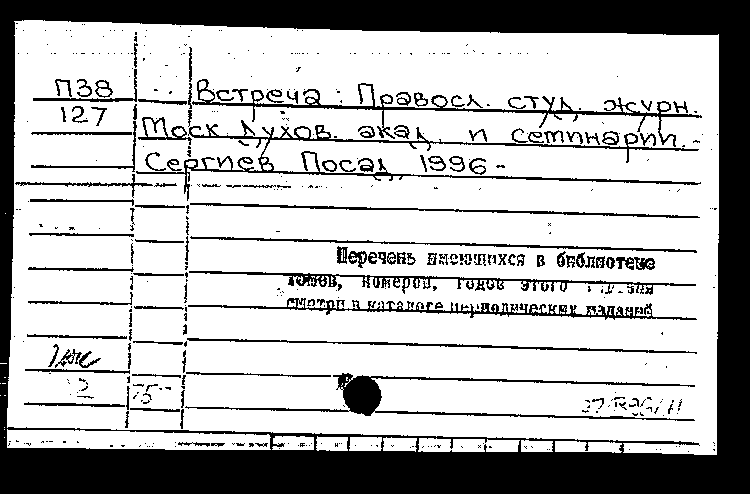 П38 Встреча : Правосл. студ. журн.
127 Моск. духов. акад. и семинарии. -
Сергиев Посад, 1996 -
Перечень имеющихся в библиотеке
томов, номеров, годов этого издания
смотри в каталоге периодических изданий
1 экз
2 75-